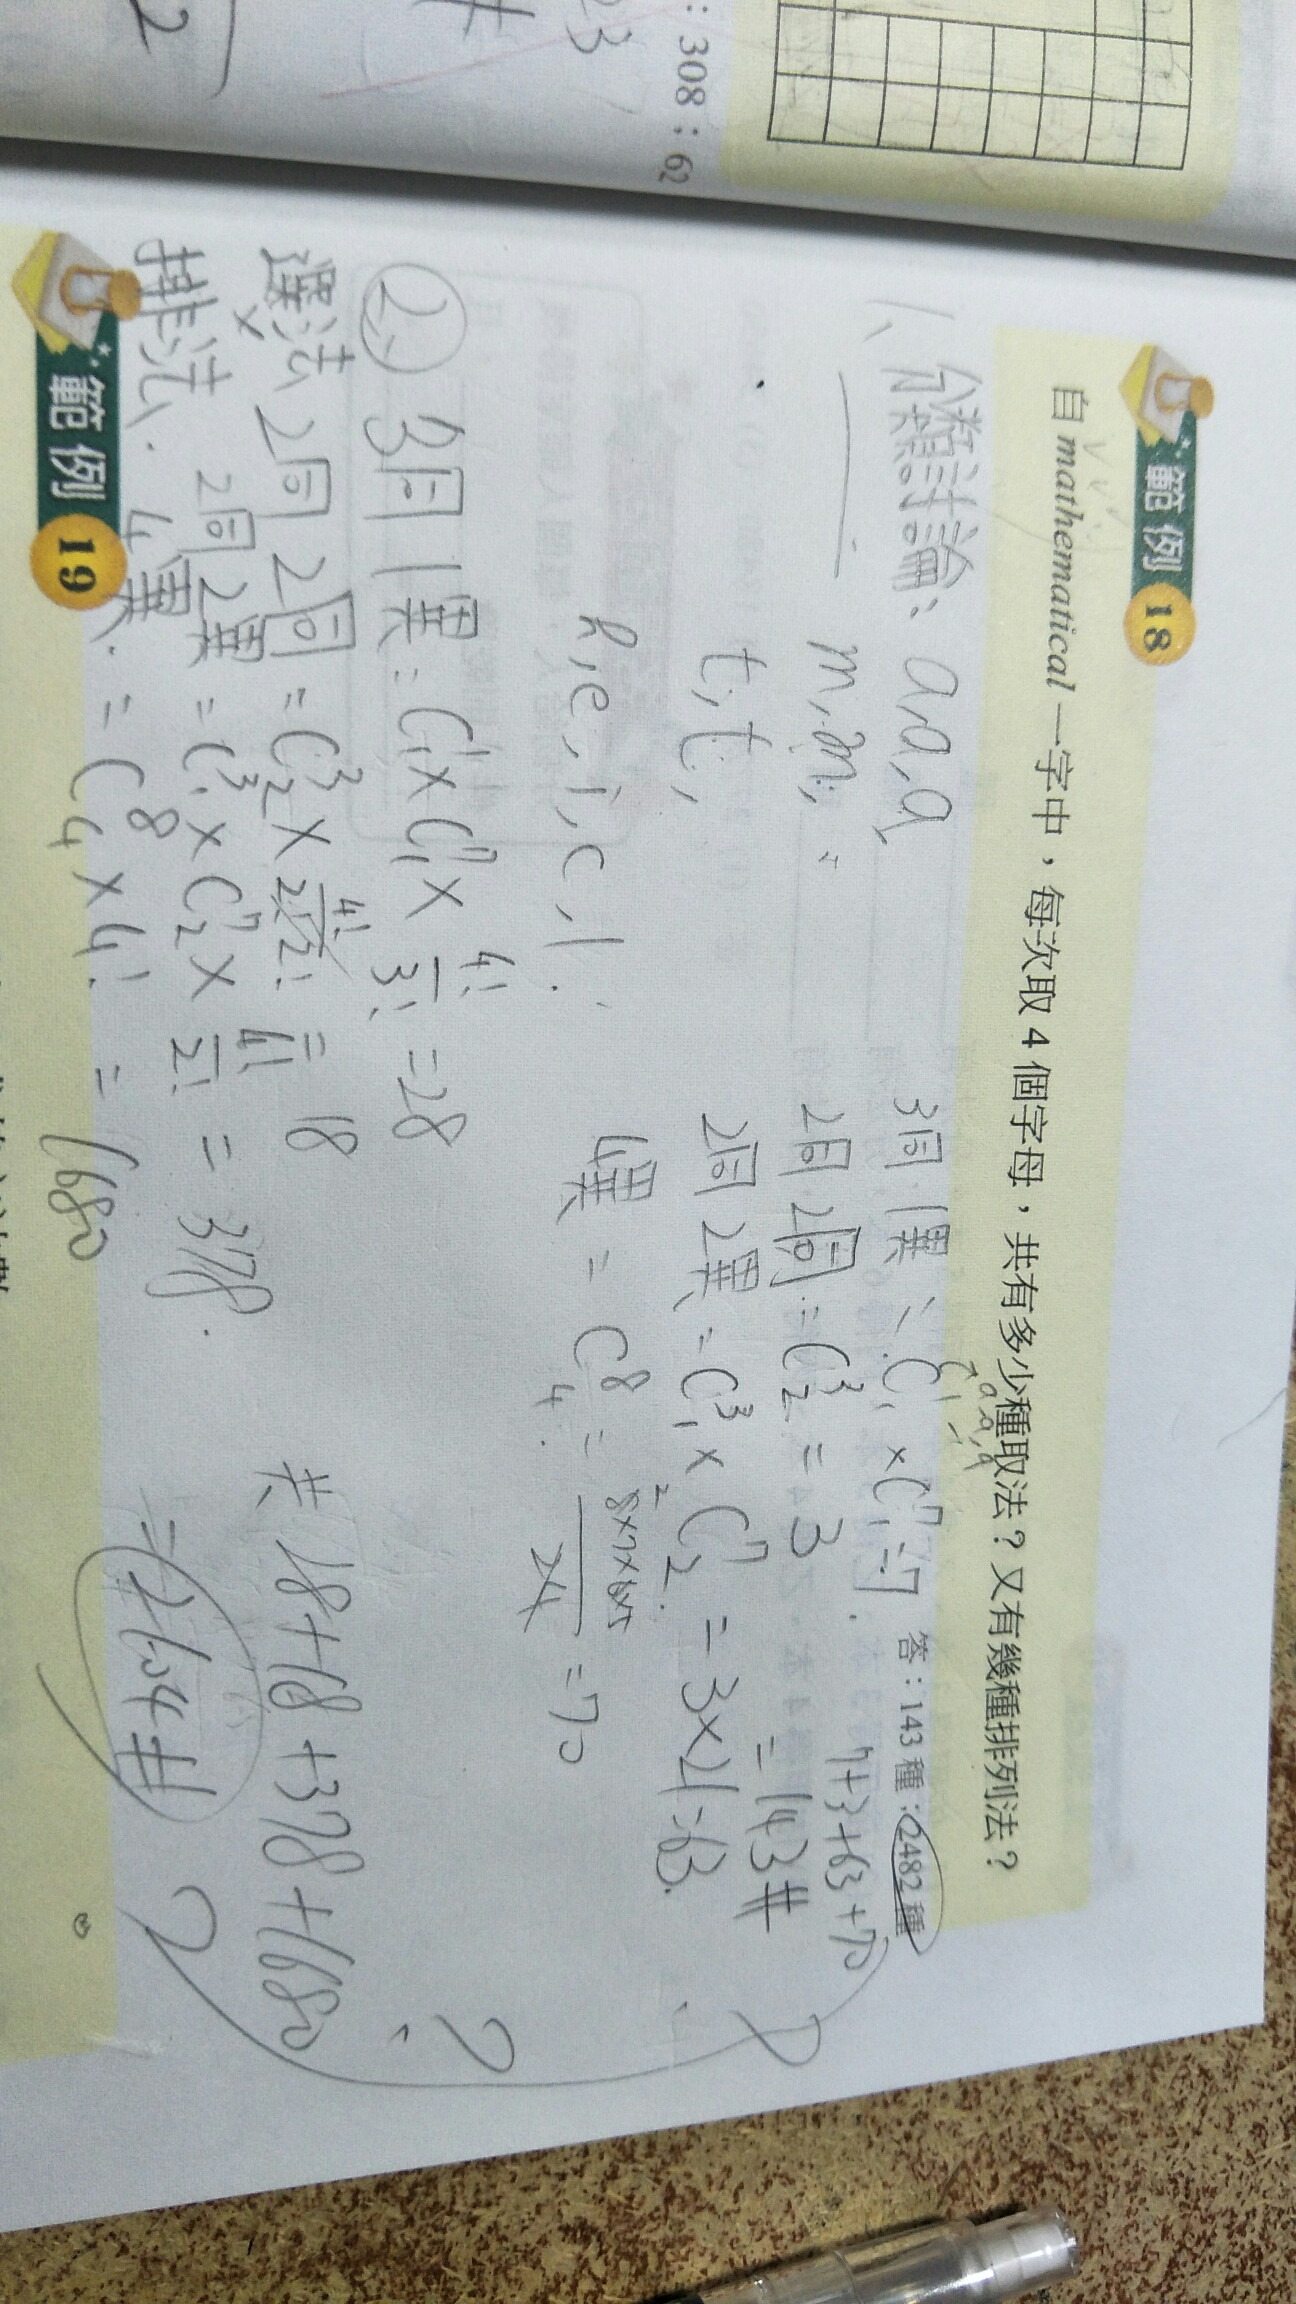 : 308 : 62
23
#
2
範例 18
自 mathematical 一字中，每次取 4 個字母，共有多少種取法？又有幾種排列法？
答：143 種；2482 種
1、分類討論： a,a,a
m,m,
t,t,
h,e,i,c,l
3同1異 = C¹₁×C⁷₁=7
a,a,a
2同2同 = C³₂ = 3
2同2異 = C³₁×C⁷₂ = 3×21=63
4異 = C⁸₄ = 8×7×6×5/24 = 70
7+3+63+70
=143#
2、 3同1異 = C¹₁×C⁷₁×4!/3! = 28
選法 2同2同 = C³₂×4!/2!2! = 18
×
排法 2同2異 = C³₁×C⁷₂×4!/2! = 378
4異 = C⁸₄×4! = 1680
共 28+18+378+1680
=2104#
?
範例 19